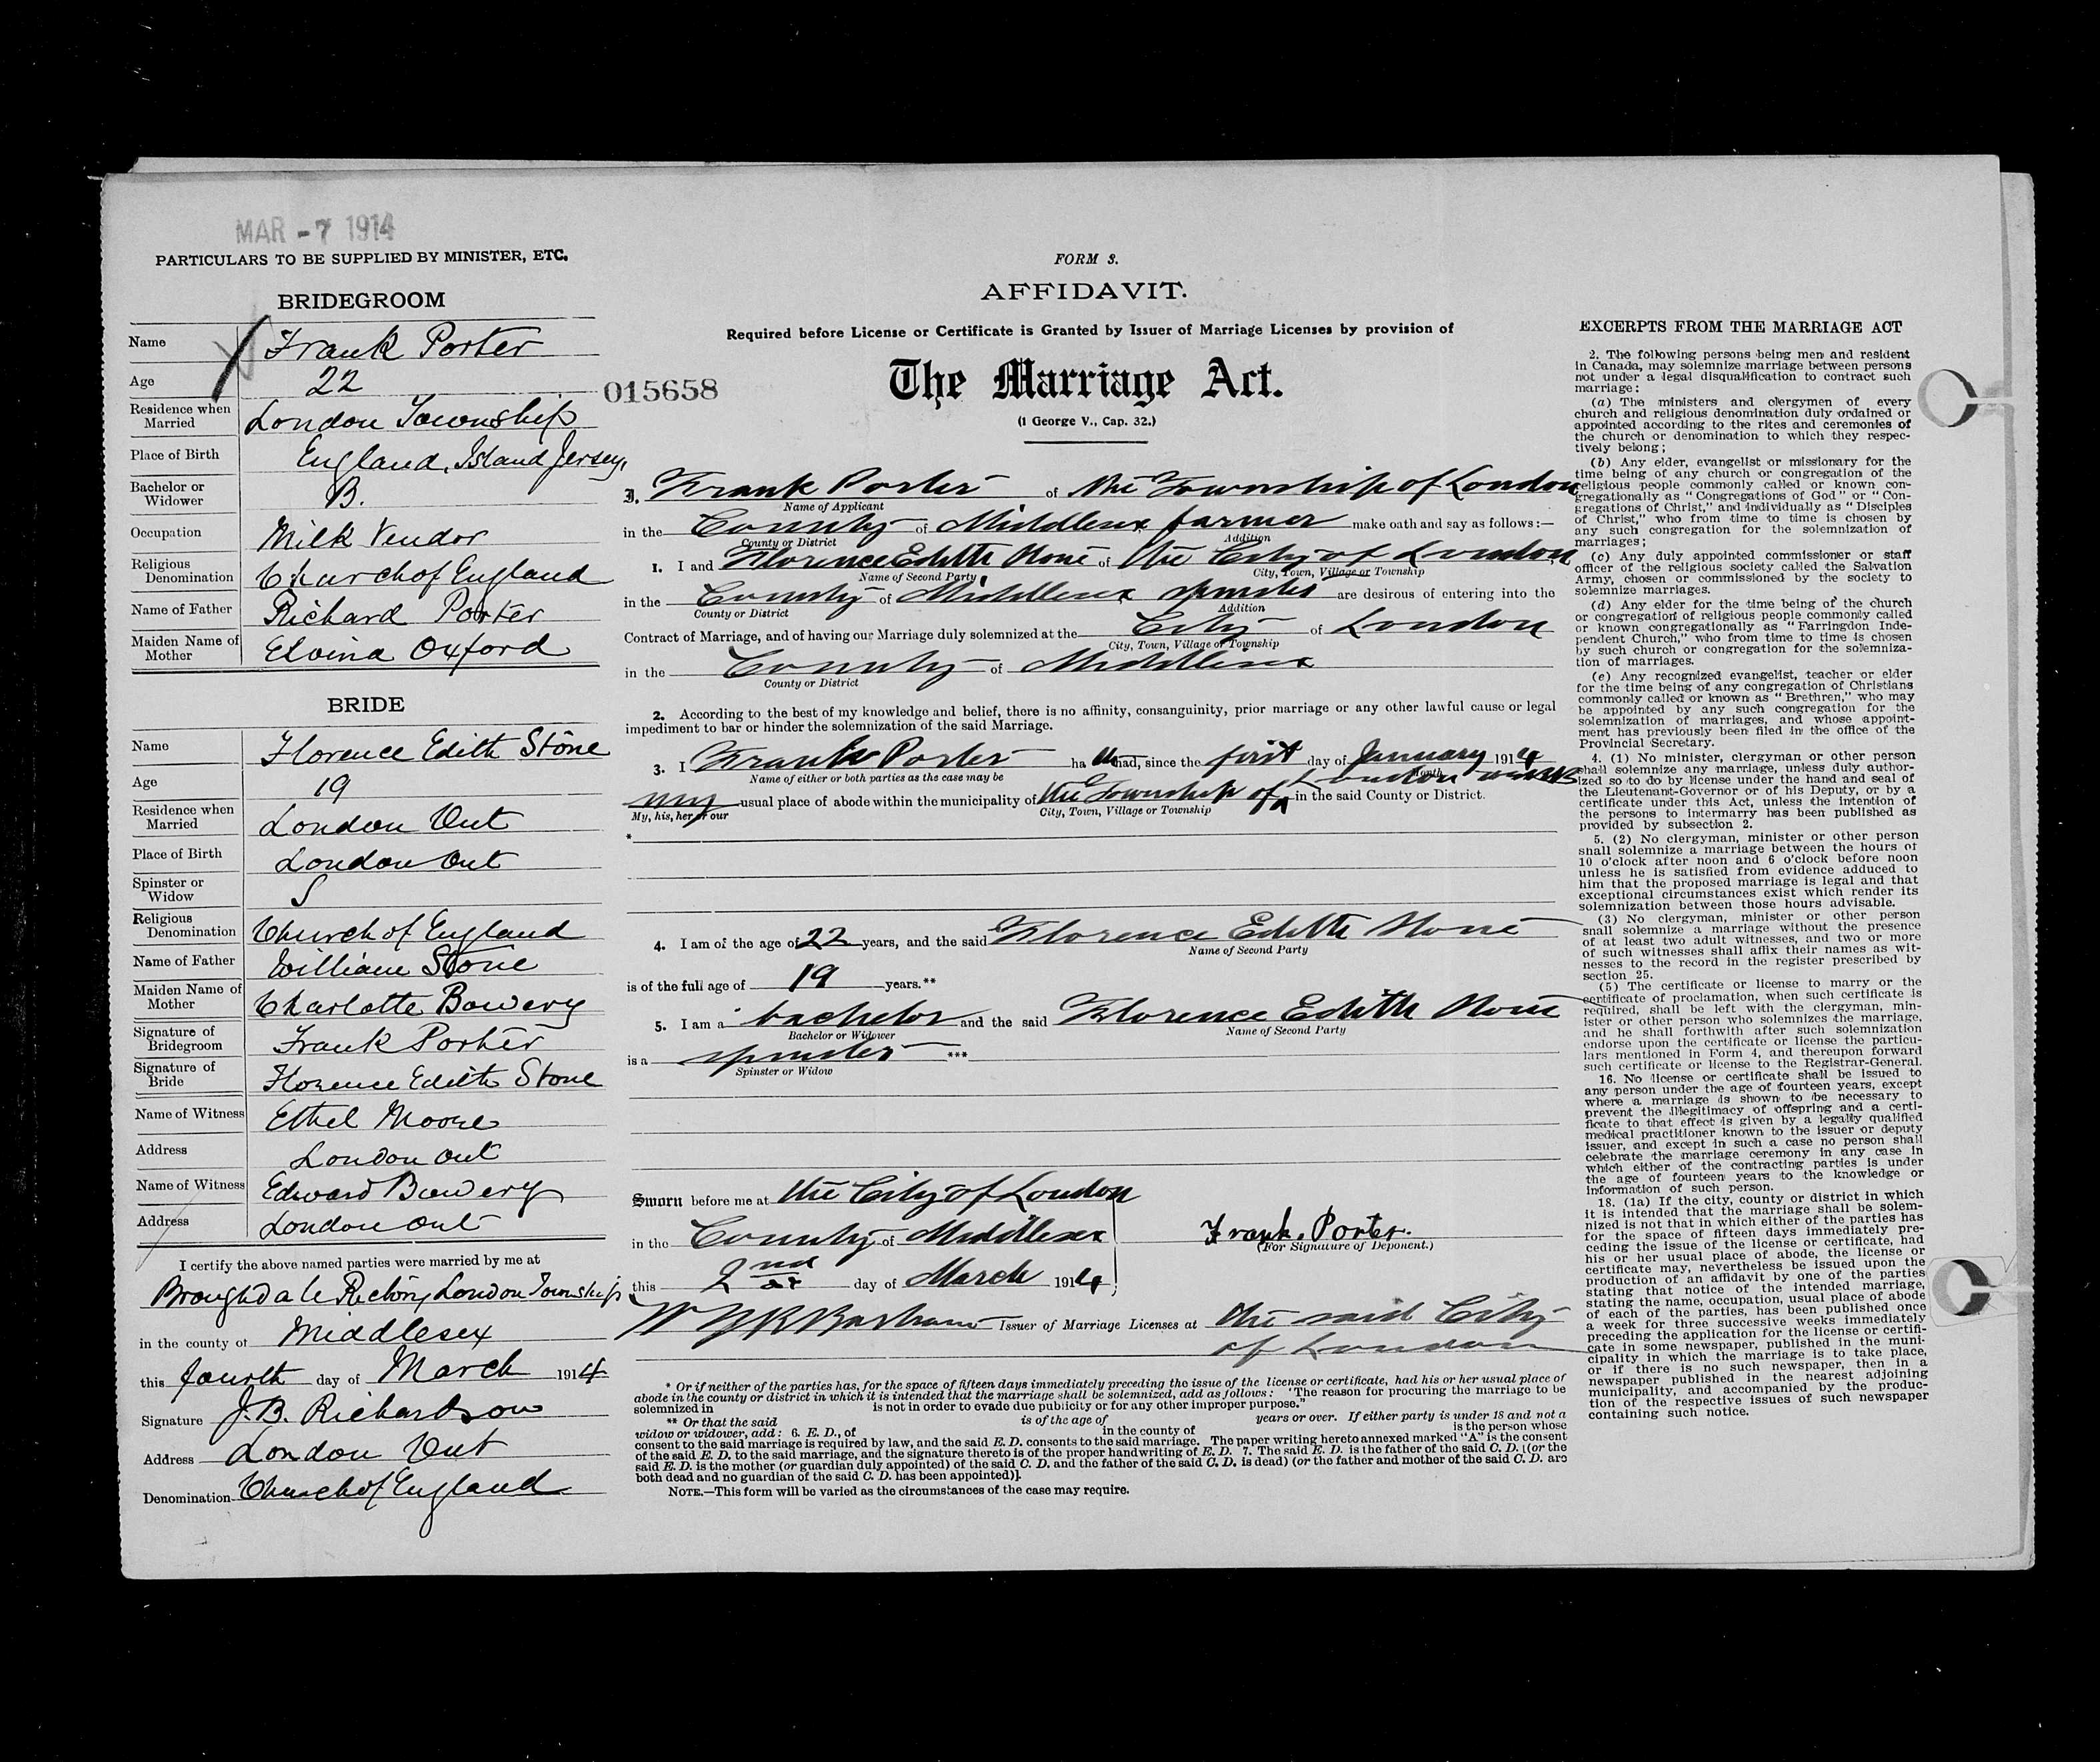 MAR -7 1914
PARTICULARS TO BE SUPPLIED BY MINISTER, ETC.
BRIDEGROOM
Name Frank Porter
Age 22
Residence when Married London Township
Place of Birth England, Island Jersey,
Bachelor or Widower B.
Occupation Milk Vendor
Religious Denomination Church of England
Name of Father Richard Porter
Maiden Name of Mother Elvina Oxford
BRIDE
Name Florence Edith Stone
Age 19
Residence when Married London Ont
Place of Birth London Ont
Spinster or Widow S
Religious Denomination Church of England
Name of Father William Stone
Maiden Name of Mother Charlotte Bowery
Signature of Bridegroom Frank Porter
Signature of Bride Florence Edith Stone
Name of Witness Ethel Moore
Address London Ont
Name of Witness Edward Bowery
Address London Ont
I certify the above named parties were married by me at
Broughdale Rectory London Township
in the county of Middlesex
this fourth day of March 1914
Signature J. B. Richardson
Address London Ont
Denomination Church of England
015658
FORM 3.
AFFIDAVIT.
Required before License or Certificate is Granted by Issuer of Marriage Licenses by provision of
The Marriage Act.
(1 George V., Cap. 32.)
I, Frank Porter of the Township of London
Name of Applicant
in the County of Middlesex farmer make oath and say as follows:—
County or District Addition
1. I and Florence Edith Stone of the City of London
Name of Second Party City, Town, Village or Township
in the County of Middlesex spinster are desirous of entering into the
County or District Addition
Contract of Marriage, and of having our Marriage duly solemnized at the City of London
City, Town, Village or Township
in the County of Middlesex
County or District
2. According to the best of my knowledge and belief, there is no affinity, consanguinity, prior marriage or any other lawful cause or legal
impediment to bar or hinder the solemnization of the said Marriage.
3. I Frank Porter ha had, since the first day of January 1914
Name of either or both parties as the case may be Month
my usual place of abode within the municipality of the Township of London in the said County or District.
My, his, her or our City, Town, Village or Township
*
4. I am of the age of 22 years, and the said Florence Edith Stone
Name of Second Party
is of the full age of 19 years.**
5. I am a bachelor and the said Florence Edith Stone
Bachelor or Widower Name of Second Party
is a spinster ***
Spinster or Widow
Sworn before me at the City of London
in the County of Middlesex
this 2nd day of March 1914
Frank. Porter.
(For Signature of Deponent.)
Issuer of Marriage Licenses at the said City
of London
* Or if neither of the parties has, for the space of fifteen days immediately preceding the issue of the license or certificate, had his or her usual place of
abode in the county or district in which it is intended that the marriage shall be solemnized, add as follows: 'The reason for procuring the marriage to be
solemnized in is not in order to evade due publicity or for any other improper purpose."
** Or that the said is of the age of years or over. If either party is under 18 and not a
widow or widower, add: 6. E. D., of in the county of is the person whose
consent to the said marriage is required by law, and the said E. D. consents to the said marriage. The paper writing hereto annexed marked "A" is the consent
of the said E. D. to the said marriage, and the signature thereto is of the proper handwriting of E. D. 7. The said E. D. is the father of the said C. D. [(or the
said E. D. is the mother (or guardian duly appointed) of the said C. D. and the father of the said C. D. is dead) (or the father and mother of the said C. D. are
both dead and no guardian of the said C. D. has been appointed)].
NOTE.—This form will be varied as the circumstances of the case may require.
EXCERPTS FROM THE MARRIAGE ACT
2. The following persons being men and resident
in Canada, may solemnize marriage between persons
not under a legal disqualification to contract such
marriage:
(a) The ministers and clergymen of every
church and religious denomination duly ordained or
appointed according to the rites and ceremonies of
the church or denomination to which they respec-
tively belong;
(b) Any elder, evangelist or missionary for the
time being of any church or congregation of the
religious people commonly called or known con-
gregationally as "Congregations of God" or "Con-
gregations of Christ," and individually as "Disciples
of Christ," who from time to time is chosen by
any such congregation for the solemnization of
marriages;
(c) Any duly appointed commissioner or staff
officer of the religious society called the Salvation
Army, chosen or commissioned by the society to
solemnize marriages.
(d) Any elder for the time being of the church
or congregation of religious people commonly called
or known congregationally as "Farringdon Inde-
pendent Church," who from time to time is chosen
by such church or congregation for the solemniza-
tion of marriages.
(e) Any recognized evangelist, teacher or elder
for the time being of any congregation of Christians
commonly called or known as "Brethren," who may
be appointed by any such congregation for the
solemnization of marriages, and whose appoint-
ment has previously been filed in the office of the
Provincial Secretary.
4. (1) No minister, clergyman or other person
shall solemnize any marriage, unless duly author-
ized so to do by license under the hand and seal of
the Lieutenant-Governor or of his Deputy, or by a
certificate under this Act, unless the intention of
the persons to intermarry has been published as
provided by subsection 2.
5. (2) No clergyman, minister or other person
shall solemnize a marriage between the hours of
10 o'clock after noon and 6 o'clock before noon
unless he is satisfied from evidence adduced to
him that the proposed marriage is legal and that
exceptional circumstances exist which render its
solemnization between those hours advisable.
(3) No clergyman, minister or other person
shall solemnize a marriage without the presence
of at least two adult witnesses, and two or more
of such witnesses shall affix their names as wit-
nesses to the record in the register prescribed by
section 25.
(5) The certificate or license to marry or the
certificate of proclamation, when such certificate is
required, shall be left with the clergyman, min-
ister or other person who solemnizes the marriage,
and he shall forthwith after such solemnization
endorse upon the certificate or license the particu-
lars mentioned in Form 4, and thereupon forward
such certificate or license to the Registrar-General.
16. No license or certificate shall be issued to
any person under the age of fourteen years, except
where a marriage is shown to be necessary to
prevent the illegitimacy of offspring and a certi-
ficate to that effect is given by a legally qualified
medical practitioner known to the issuer or deputy
issuer, and except in such a case no person shall
celebrate the marriage ceremony in any case in
which either of the contracting parties is under
the age of fourteen years to the knowledge or
information of such person.
18. (1a) If the city, county or district in which
it is intended that the marriage shall be solem-
nized is not that in which either of the parties has
for the space of fifteen days immediately pre-
ceding the issue of the license or certificate, had
his or her usual place of abode, the license or
certificate may, nevertheless be issued upon the
production of an affidavit by one of the parties
stating that notice of the intended marriage,
stating the name, occupation, usual place of abode
of each of the parties, has been published once
a week for three successive weeks immediately
preceding the application for the license or certifi-
cate in some newspaper, published in the muni-
cipality in which the marriage is to take place,
or if there is no such newspaper, then in a
newspaper published in the nearest adjoining
municipality, and accompanied by the produc-
tion of the respective issues of such newspaper
containing such notice.